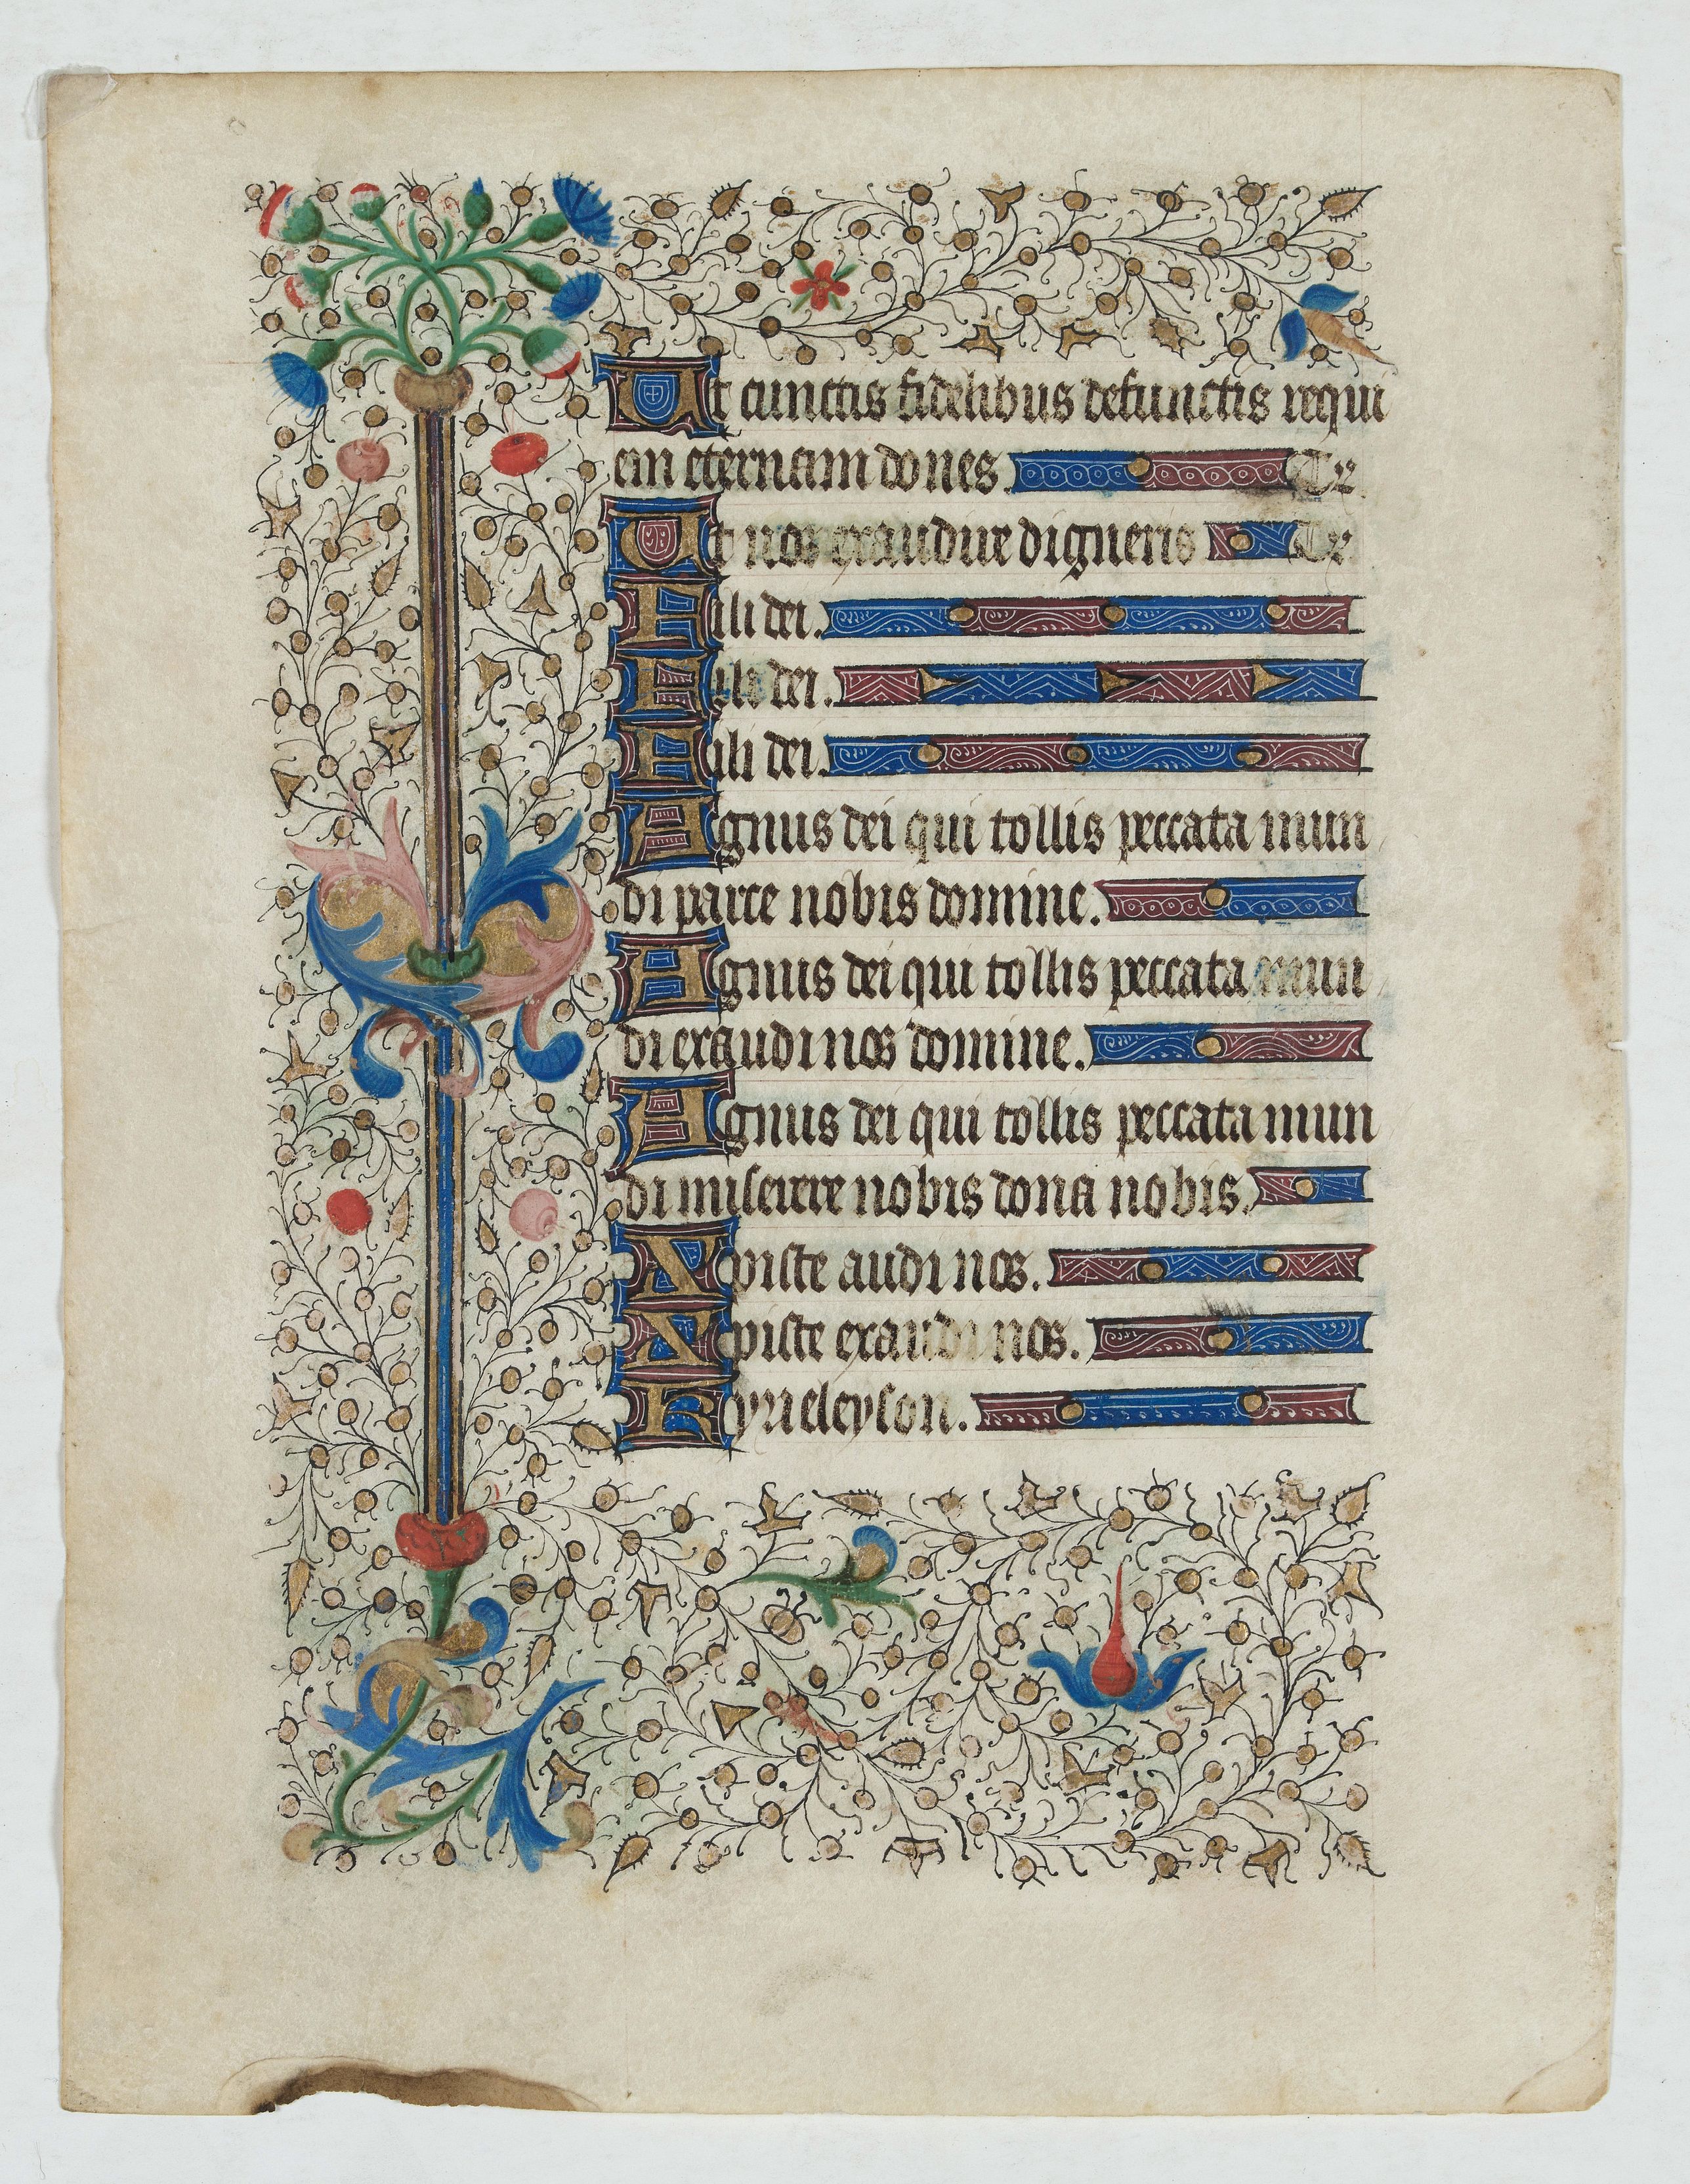 Ut cunctis fidelibus defunctis requi
em eternam dones. Te
Ut nos exaudire digneris Te
Fili dei.
Fili dei.
Fili dei.
Agnus dei qui tollis peccata mun
di parce nobis domine.
Agnus dei qui tollis peccata mun
di exaudi nos domine.
Agnus dei qui tollis peccata mun
di miserere nobis dona nobis.
Xpiste audi nos.
Xpiste exaudi nos.
Kyrieleyson.